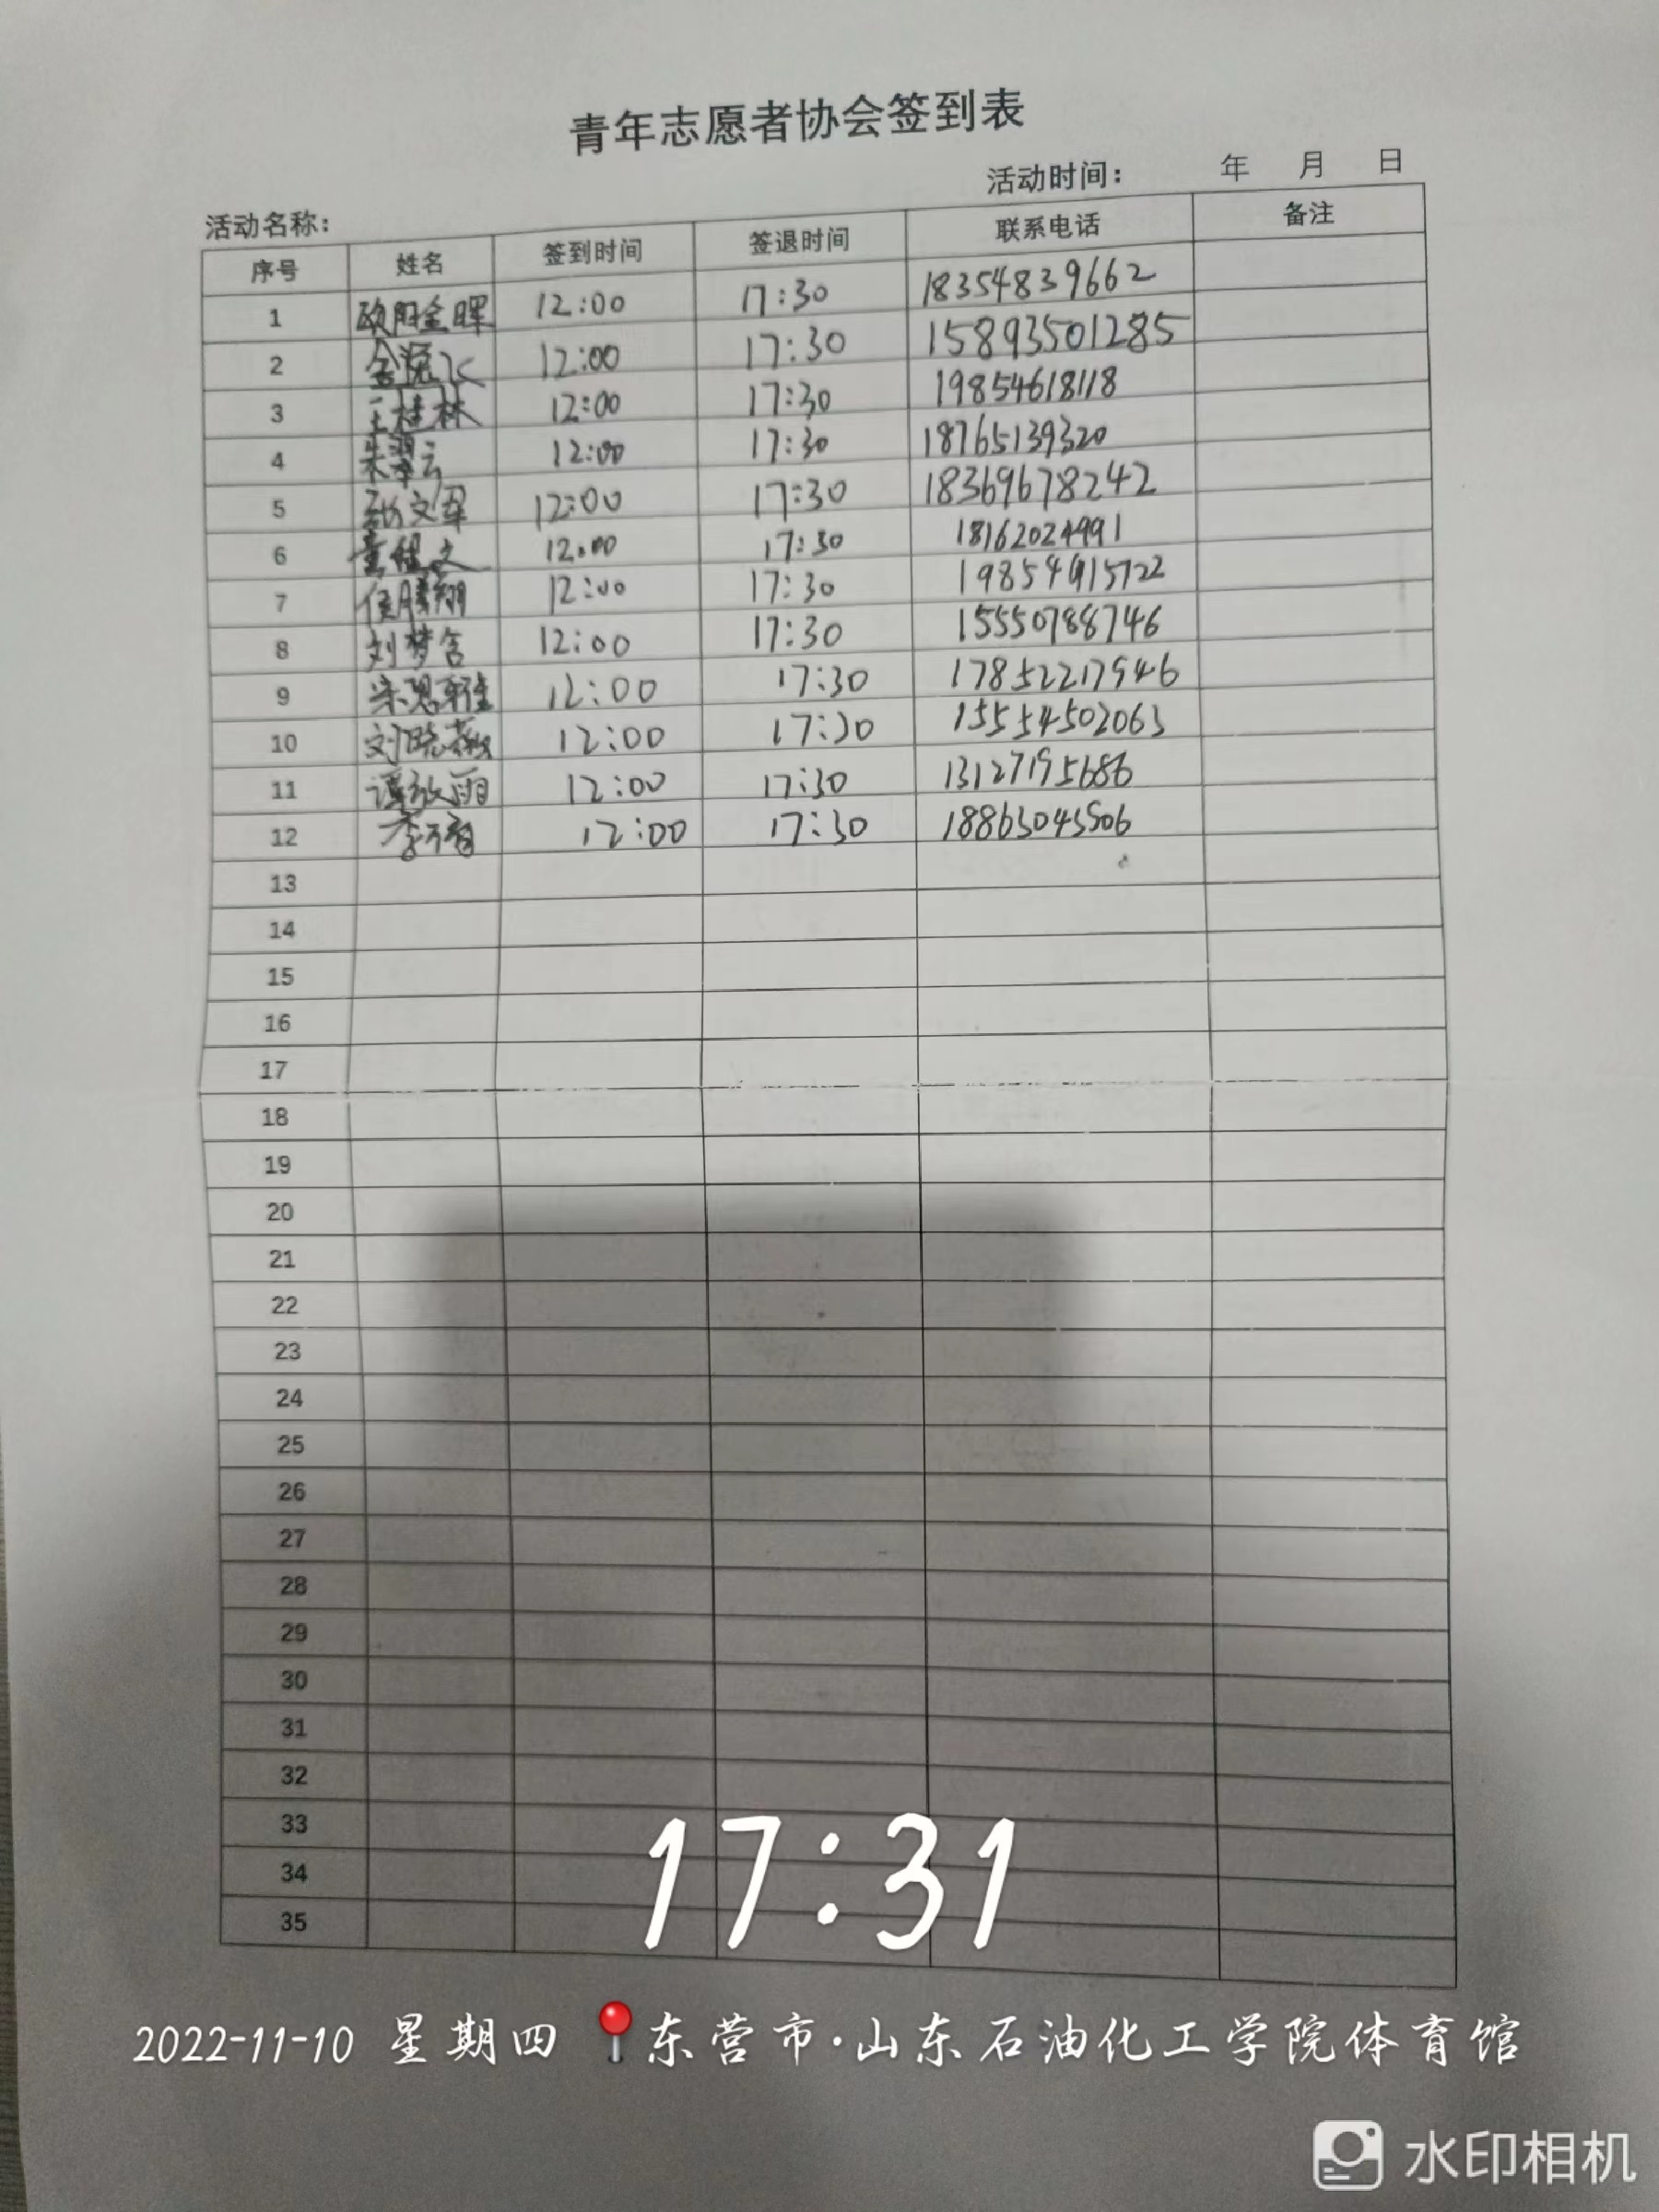 青年志愿者协会签到表
活动时间： 年 月 日
活动名称：
序号 姓名 签到时间 签退时间 联系电话 备注
1 欧阳金晖 12:00 17:30 18354839662
2 12:00 17:30 15893501285
3 王桂林 12:00 17:30 19854618118
4 朱翠云 12:00 17:30 18765139320
5 张文军 12:00 17:30 18369678242
6 12:00 17:30 18162024991
7 侯腾翔 12:00 17:30
8 刘梦含 12:00 17:30 15550788746
9 宋思雅 12:00 17:30 17852217546
10 刘晓薇 12:00 17:30 15554502063
11 谭放雨 12:00 17:30 13127195686
12 12:00 17:30 18863045506
13
14
15
16
17
18
19
20
21
22
23
24
25
26
27
28
29
30
31
32
33
34
35
17:31
2022-11-10 星期四 东营市·山东石油化工学院体育馆
水印相机